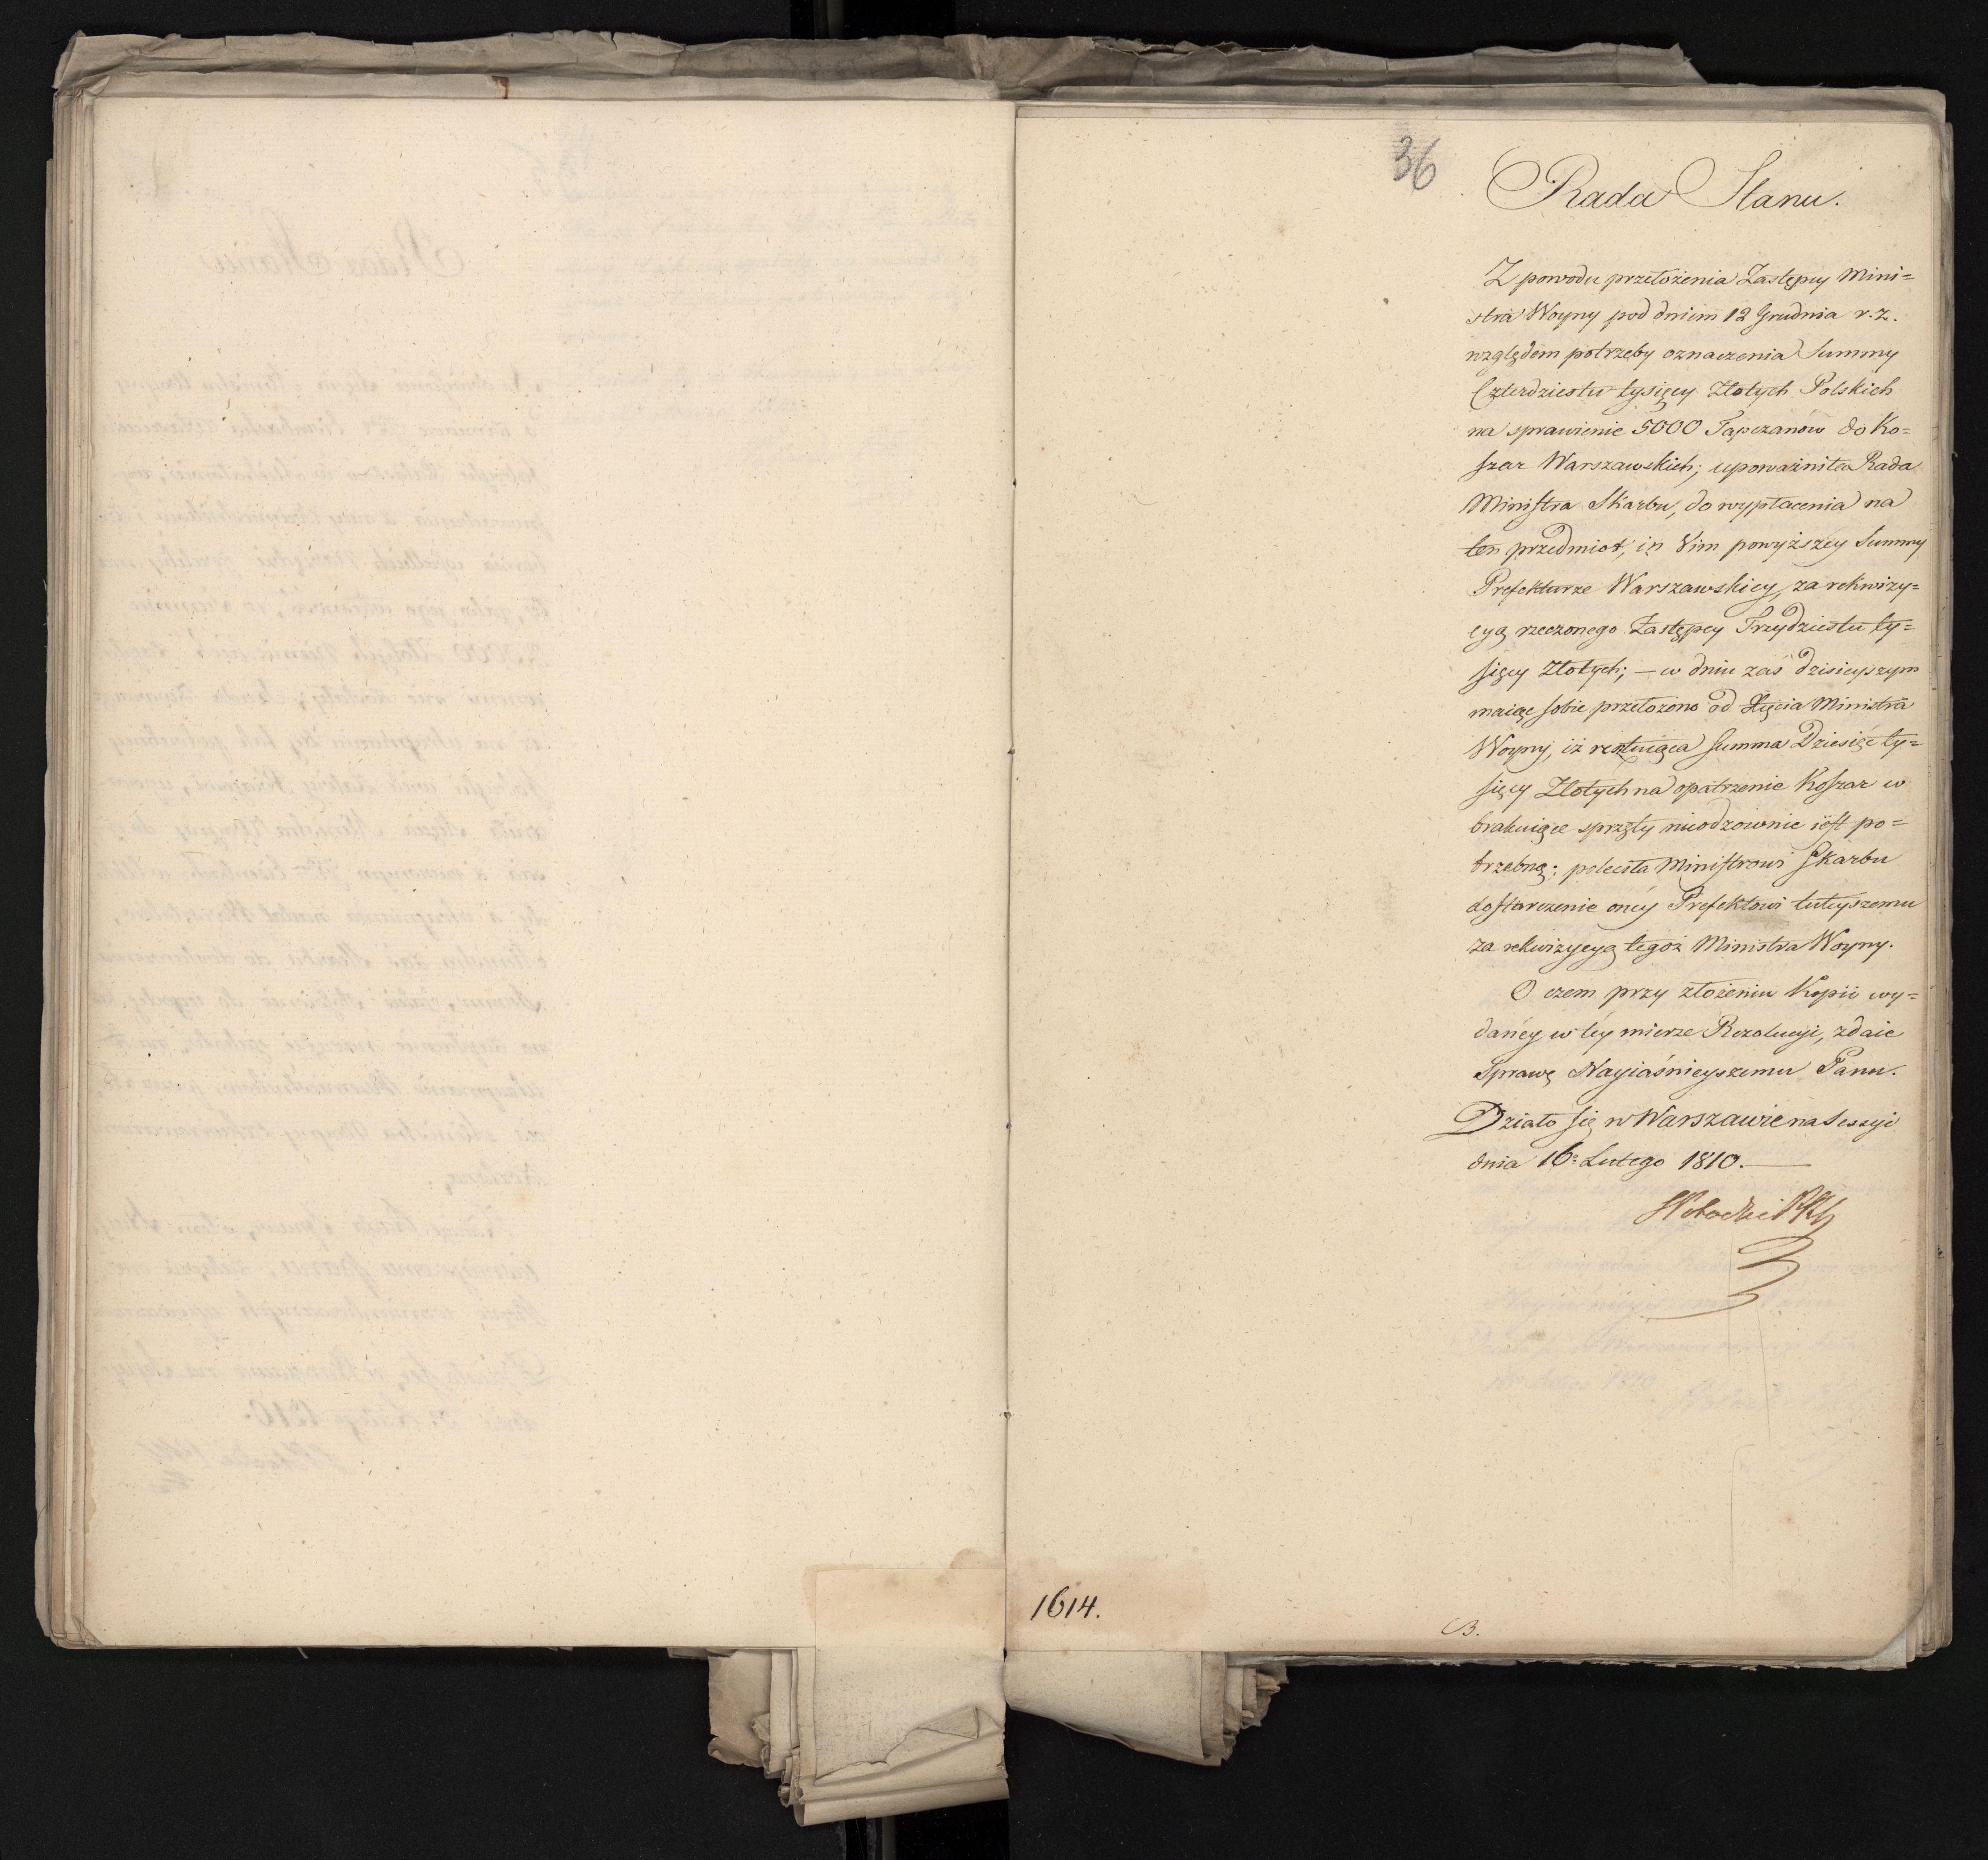 36
Rada Stanu.
Z powodu przełożenia Zastępcy Mini=
stra Woyny pod dniem 12 Grudnia r. z.
względem potrzeby oznaczenia Summy
Czterdziestu tysięcy Złotych Polskich
na sprawienie 5000 Tapczanów do Ko=
szar Warszawskich; upoważniła Rada
Ministra Skarbu, do wypłacenia na
ten przedmiot, in Vim powyższey Summy
Prefekturze Warszawskiey, za rekwizy=
cyą rzeczonego Zastępcy Trzydziestu ty=
sięcy Złotych; — w dniu zaś dzisieyszym
maiąc sobie przełożono od Xięcia Ministra
Woyny, iż restuiąca Summa Dziesięć ty=
sięcy Złotych na opatrzenie Koszar w
brakuiące sprzęty nieodzownie iest po=
trzebną; poleciła Ministrowi Skarbu
dostarczenie oney Prefektowi tuteyszemu
za rekwizycyą tegoż Ministra Woyny.
O czem przy złożeniu Kopii wy=
daney w tey mierze Rezolucyi, zdaie
Sprawę Nayiaśnieyszemu Panu.
Działo się w Warszawie na Sessyi
dnia 16. Lutego 1810. —
1614.
B.